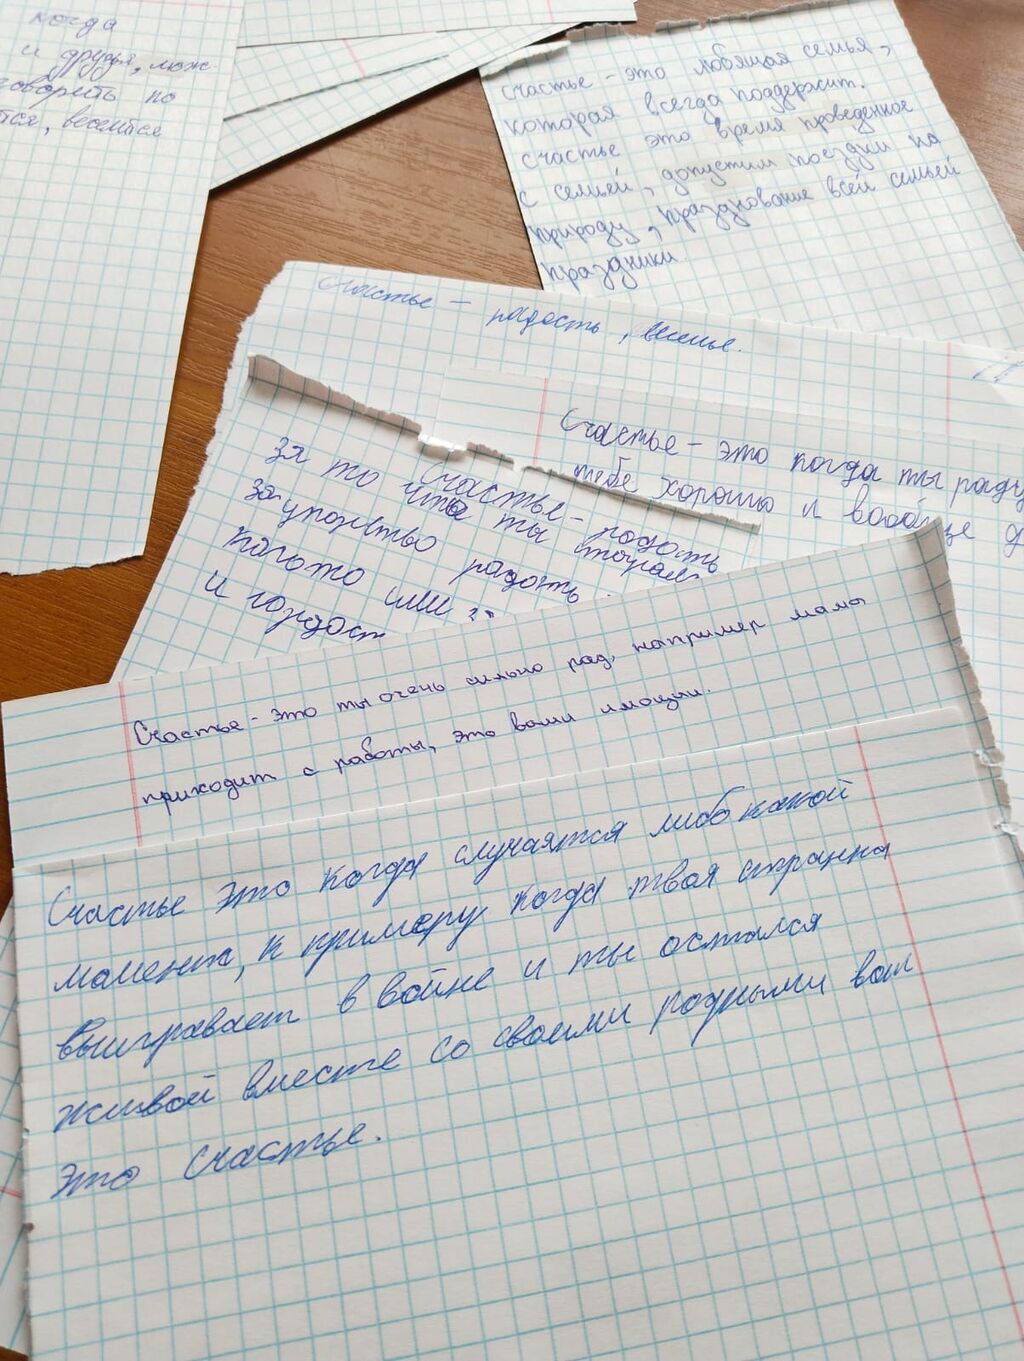 когда
и друзья, мож
говорить по
тся, весится
счастье - это любящая семья,
которая всегда поддержит.
счастье это время проведенное
с семьёй, допустим поездки на
природу, празднование всей семьёй
праздники.
Счастье - радость, веселье.
Счастье - это когда ты раду
тебе хорошо и вообще д
Счастье - радость
за то что ты
за упорство радость.
или
и гордост
Счастье - это ты очень сильно рад, например мама
приходит с работы, это ваши имоции.
Счастье это когда случаятся либо какой
момент, к примеру когда твоя странна
выигравает в войне и ты остался
живой вместе со своими родными вот
это счастье.